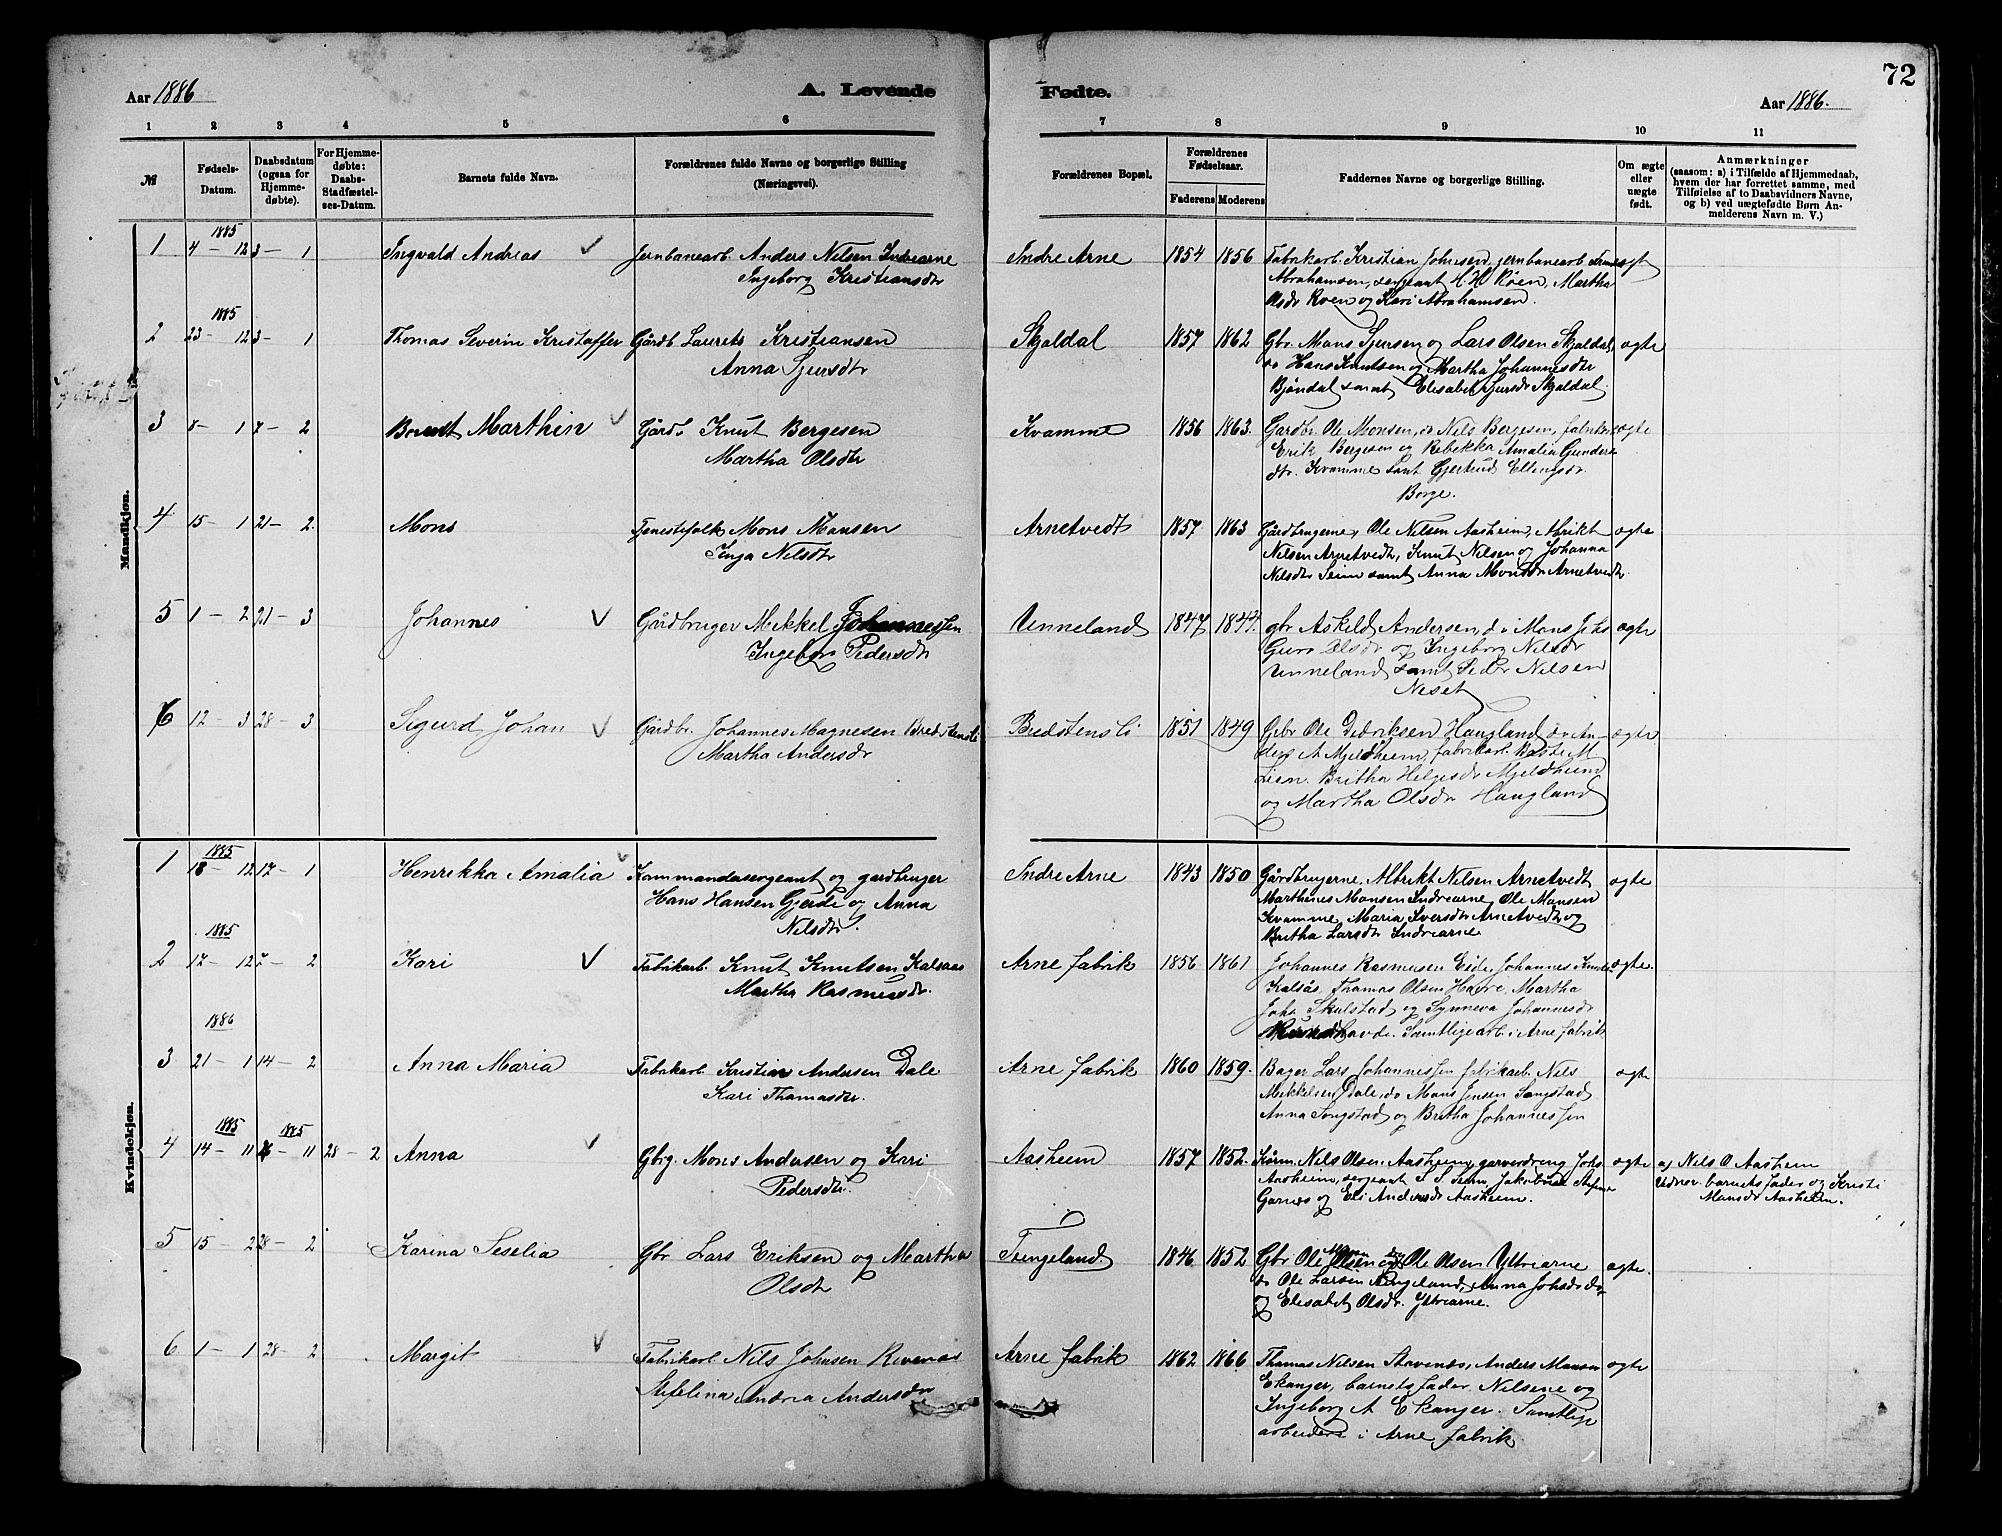 72
Aar 1886
A. Levende
Fødte.
Aar 1886.
1 2 3 4 5 6
7 8 9 10 11
№ Fødsels-Datum. Daabsdatum (ogsaa for Hjemmedøbte). For Hjemmedøbte: Daabs-Stadfæstelses-Datum. Barnets fulde Navn. Forældrenes fulde Navne og borgerlige Stilling (Næringsvei).
Forældrenes Bopæl. Forældrenes Fødselsaar. Faderens Moderens Faddernes Navne og borgerlige Stilling. Om ægte eller uægte født. Anmærkninger (saasom: a) i Tilfælde af Hjemmedaab, hvem der har forrettet samme, med Tilføielse af to Daabsvidners Navne, og b) ved uægtefødte Børn Anmelderens Navn m. V.)
Mandkjøn.
1885
1 4 — 12 3 — 1 Ingvald Andreas Jernbanearb. Anders Nilsen Indrearne
Ingeborg Kristiansdtr
Indre Arne 1854 1856 Fabrikarb. Kristian Johnsen, jernbanearb. ægte
Abrahamsen, sergeant H. H. Röen, Martha
Olsdr Roen og Kari Abrahamsen.
1885
2 23 — 12 3 — 1 Thomas Severin Kristoffer Gårdb. Laurits Kristiansen
Anna Sjursdtr
Skjoldal 1857 1862 Gbr. Mons Sjursen og Lars Olsen Skjoldal, ægte
do Hans Knutsen og Martha Johannesdtr
Bjøndal samt Elisabet Sjursdr Skjoldal.
3 8 — 1 7 — 2 Berent Marthin Gårdb. Knut Bergesen
Martha Olsdtr
Kvamme 1856 1863. Gardbr. Ole Monsen, do Nils Bergesen, fabrikarb ægte
Erik Bergesen og Rebekka Amalia Gunders
dtr. Kvamme samt Gjertrud Ellingsdr
Borge.
4 15 — 1 21 — 2. Mons Tjenestefolk Mons Monsen
Inga Nilsdtr
Arnetvedt 1857 1863 Gårdbrugerne, Ole Nilsen Aasheim, Albrikt ægte
Nilsen Arnetvedt, Knut Nilsen og Johanna
Nilsdtr Seim samt Anna Monsdr Arnetvedt.
5 1 — 2 21 — 3 Johannes Gårdbruger Mekkel Johannessen
Ingeborg Pedersdtr
Unneland 1847 1844. gbr. Askild Andersen, do Mons Johs ægte
Guro Olsdr og Ingeborg Nilsdr
Unneland samt Peder Nilsen
Neset
6 12 — 3 28 — 3 Sigurd Johan Gårdbr. Johannes Magnesen Bredstensli
Martha Andersdr
Bredstensli 1851 1849 Gbr. Ole Didriksen Haugland do An- ægte
ders A Mjeldheim, fabrikarb. Baste M.
Lien. Britha Helgesdr Mjeldheim
og Martha Olsdr Haugland
Kvindekjøn.
1885
1 18 — 12 17 — 1 Henrikka Amalia Kommandersergeant og gardbruger
Hans Hansen Gjerde og Anna
Nilsdtr.
Indre Arne 1843 1850 Gårdbrugerne, Albrikt Nilsen Arnetvedt ægte
Marthines Monsen Indrearne, Ole Monsen
Kvamme, Maria Iversdtr Arnetvedt og
Britha Larsdr Indrearne
1885
2 17 — 12 7 — 2 Kari Fabrikarb. Knut Knutsen Kalsaas
Martha Rasmusdr.
Arne fabrik 1856 1861 Johannes Rasmusen Eide, Johannes Knuts. ægte.
Kalsås, Thomas Olsen Havre, Martha
Johs Skulstad og Synneva Johannesdr
Havde. Samtlige arb. i Arne fabrik
1886
3 21 — 1 14 — 2 Anna Maria Fabrikarb. Kristian Andersen Dale
Kari Thomasdtr.
Arne fabrik 1860 1859. Bager Lars Johannessen fabrikarb. Nils ægte
Mekkelsen Dale, do Mons Jensen Songstad
Anna Songstad og Britha Johannessen
1885 1885
4 14 — 11 26 — 11 28 — 2 Anna Gbrg. Mons Andersen og Kari
Pedersdtr.
Aasheim 1857 1852. Kårm. Nils Olsen Aasheim, garverdreng Johs. ægte a) Nils O Aasheim
Aasheim, sergeant S. S. Seim, Jakobine Stefans
Garnes og Eli Andersdr Aasheim.
Vidner barnets fader og Kristi
Monsdr Aasheim.
5 15 — 2 28 — 2 Karina Seselia Gbr Lars Eriksen og Martha
Olsdtr
Tengeland. 1846 1852 Gbr Ole Olsen og Ole Olsen Ytrearne ægte.
do Ole Larsen Tengeland, Anna Johsdr do
og Elisabet Olsdr. Ytrearne.
6 1 — 1 28 — 2 Margit Fabrikarb. Nils Johnsen Revenes
Stefelina Andrea Andersdtr
Arne fabrik 1862 1866 Thomas Nilsen Stavenes, Anders Monsen ægte
Ekanger, barnets fader, Nilsine og
Ingeborg A Ekanger. Samtlige
arbeidere i Arne fabrik.